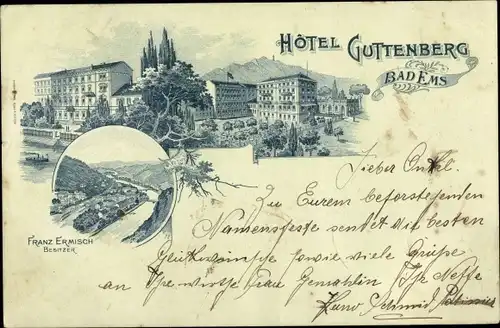 HÔTEL GUTTENBERG
BAD EMS
FRANZ ERMISCH
BESITZER
Lieber Onkel.
Zu Eurem beforstehenden
Namensfeste sendet die besten
Glückwünsche sowie viele Grüße
an Ihre werthe Frau Gemahlin Ihr Neffe
Hans Schmid